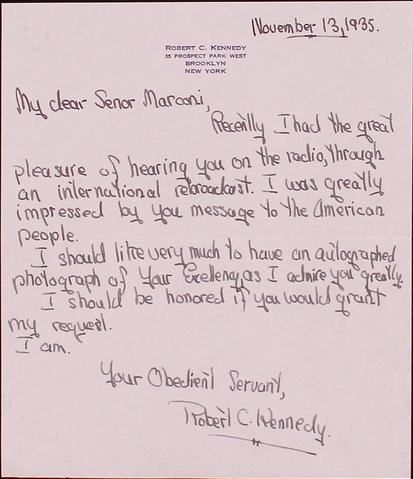 November 13, 1935.
ROBERT C. KENNEDY
35 PROSPECT PARK WEST
BROOKLYN
NEW YORK
My dear Senor Marconi,
Recently I had the great
pleasure of hearing you on the radio, through
an international rebroadcast. I was greatly
impressed by you message to the American
people.
I should like very much to have an autographed
photograph of Your Exellency, as I admire you greatly.
I should be honored if you would grant
my request.
I am.
Your Obedient Servant,
Robert C. Kennedy.